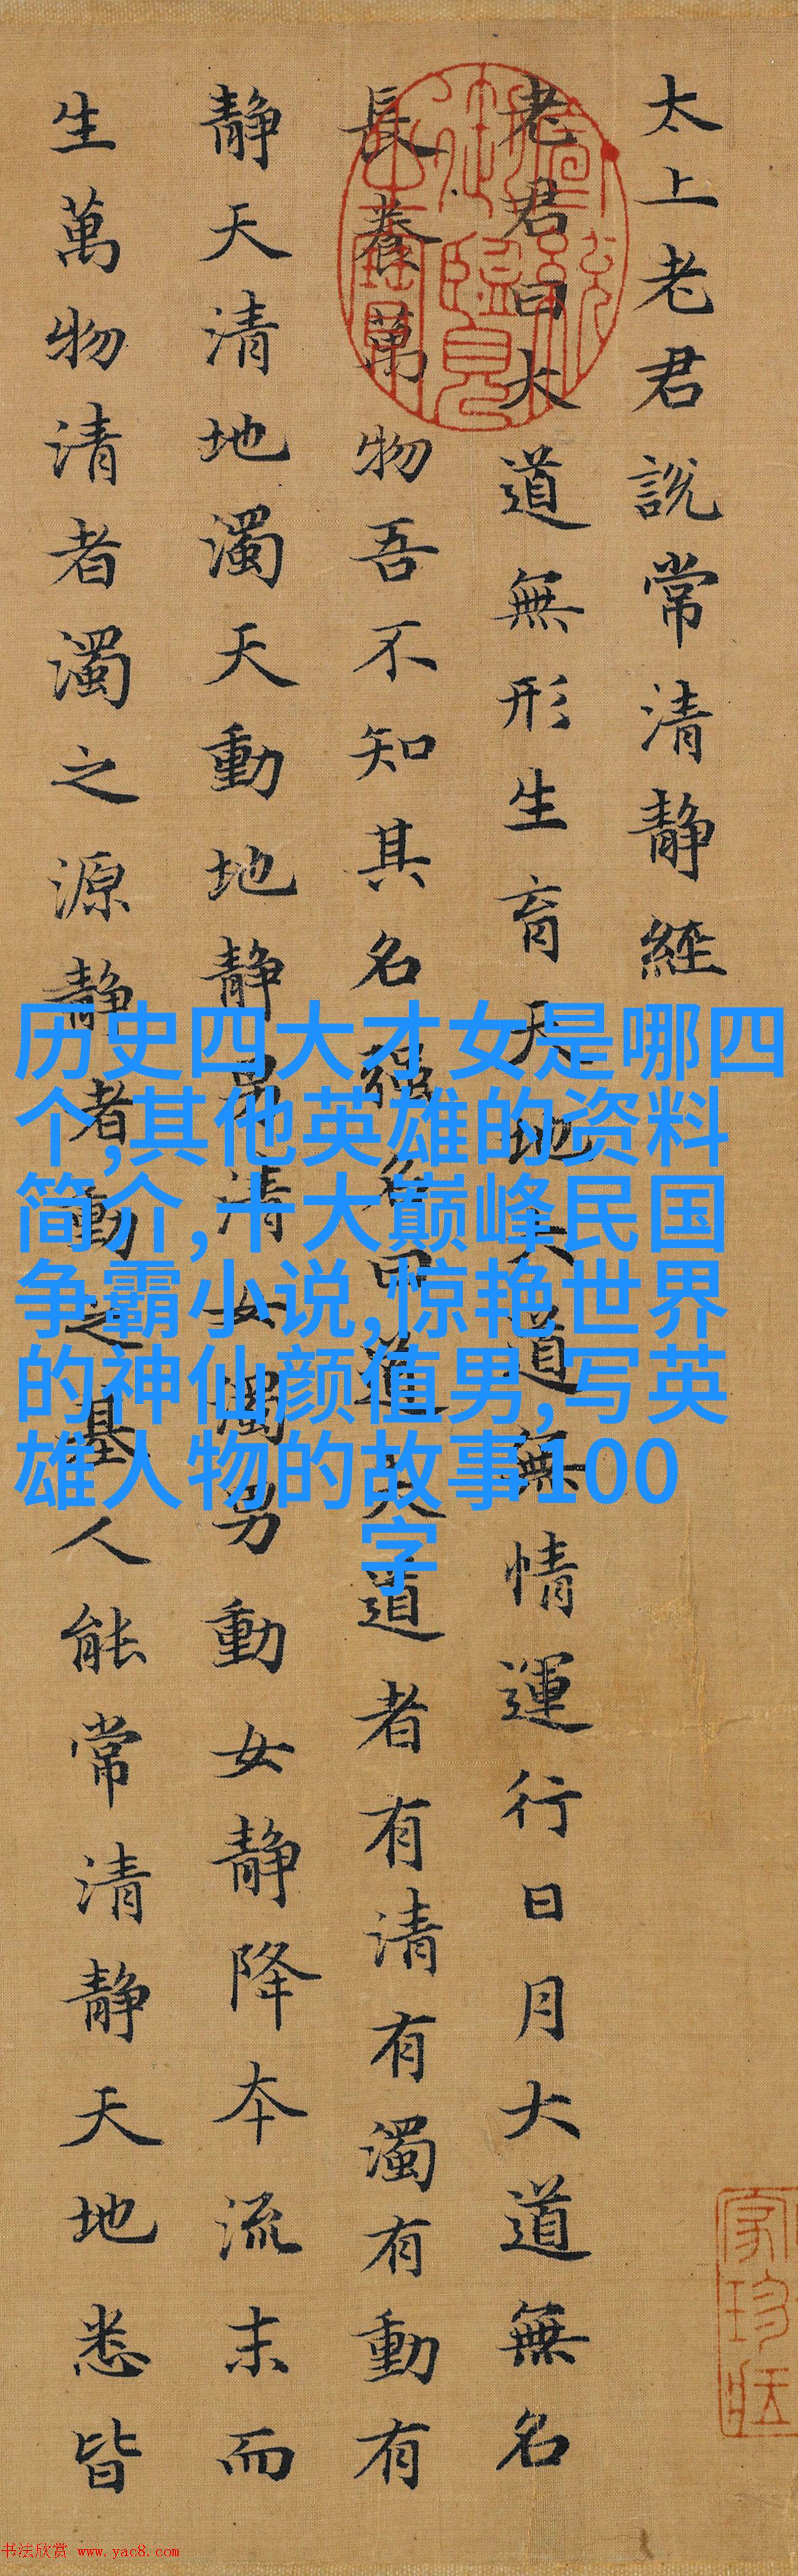 太上老君説常清靜經
老君曰大道無形生育天地大道無情運行日月大道無名
長養萬物吾不知其名强名曰道夫道者有清有濁有動有
靜天清地濁天動地靜男清女濁男動女靜降本流末而
生萬物清者濁之源靜者動之基人能常清靜天地悉皆
历史四大才女是哪四
个,其他英雄的资料
简介,十大巅峰民国
争霸小说,惊艳世界
的神仙颜值男,写英
雄人物的故事100
字
书法欣赏 www.yac8.com